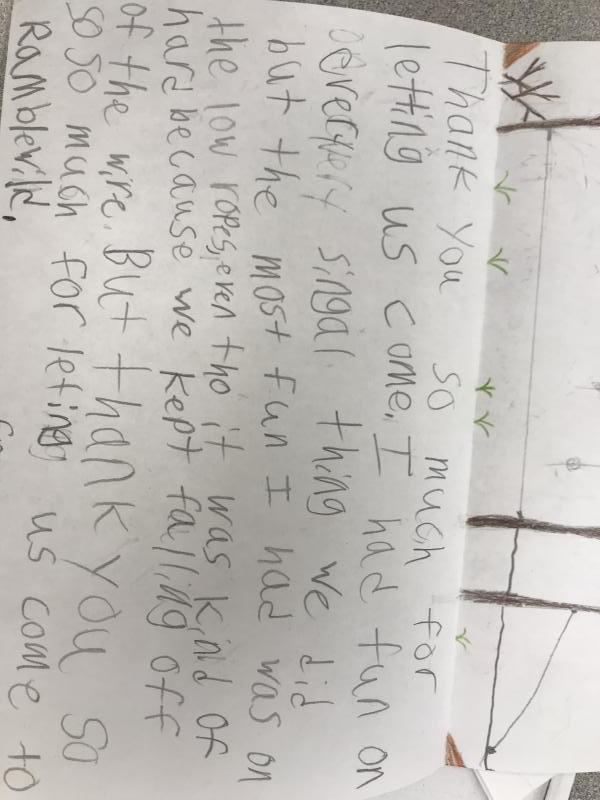 Thank you so much for
letting us come. I had fun on
everyery singal thing we did
but the most fun I had was on
the low ropes, even tho it was kind of
hard because we kept falling off
of the wire. But thank you so
so so much for leting us come to
Ramblewild.